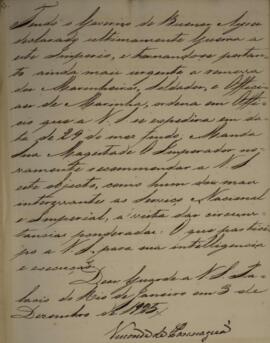 Tendo o Governo de Buenos Ayres
declarado ultimamente Guerra a
este Imperio, e tornando-se portan-
to ainda mais urgente a remessa
de Marinheiros, Soldados, e Offici-
aes de Marinha, ordenada em Offi-
cio que a V S se expedira em da-
ta de 29 do mez findo, Manda
Sua Magestade O Imperador no-
vamente recommendar a V S
este objecto, como hum dos mais
interessantes ao Serviço Nacional
e Imperial, á vista das circuns-
tancias ponderadas: O que partici-
po a V S, para sua intelligencia
e execução.
Deos Guarde a V S Pa-
lacio do Rio de Janeiro em 3 de
Dezembro de 1825
Visconde de Paranaguá